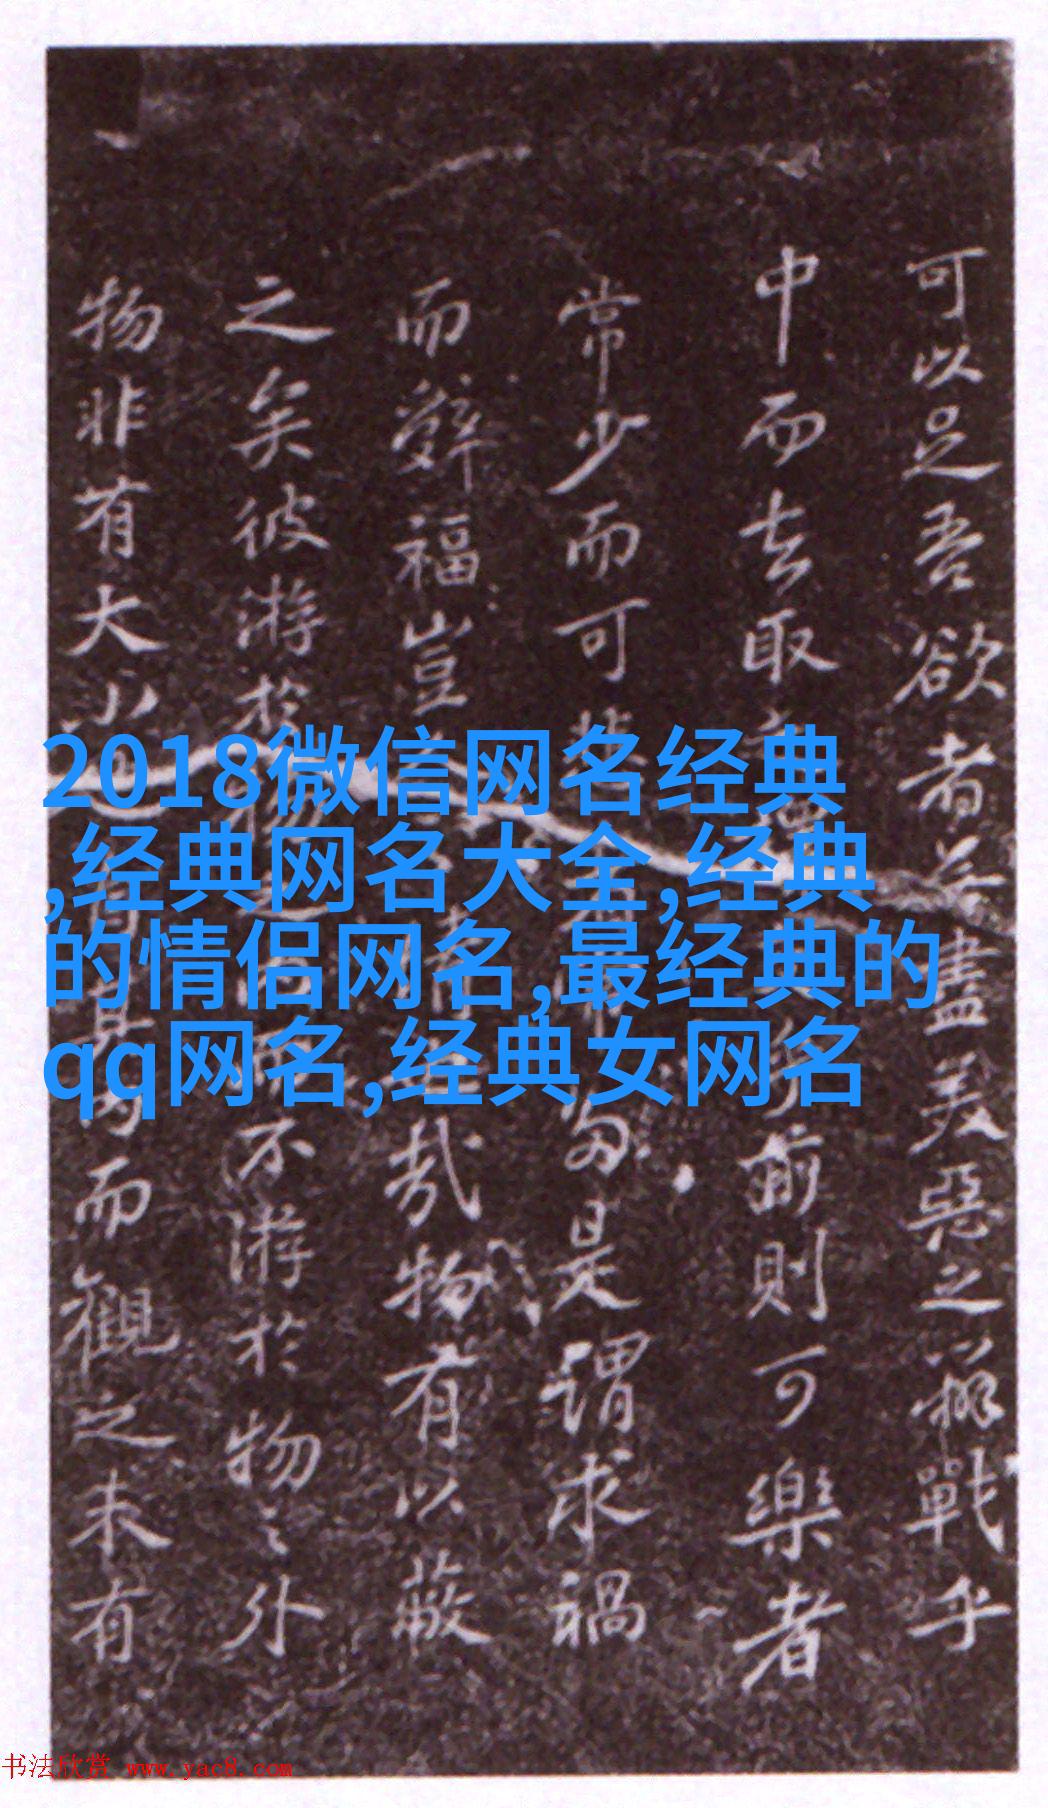 可以足吾欲者盡美惡之辨戰乎
中而去取前則可樂者
常少而可是謂求禍
而辭福豈哉物有以蔽
之矣彼游於不游於物之外
物非有大小其內而觀之未有
2018微信网名经典
,经典网名大全,经典
的情侣网名,最经典的
qq网名,经典女网名
书法欣赏 www.yac8.com